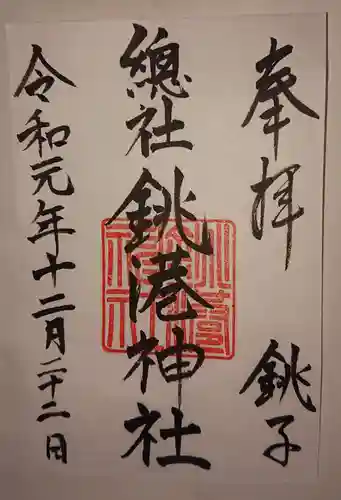 奉拝　銚子
總社銚港神社
令和元年十二月二十二日